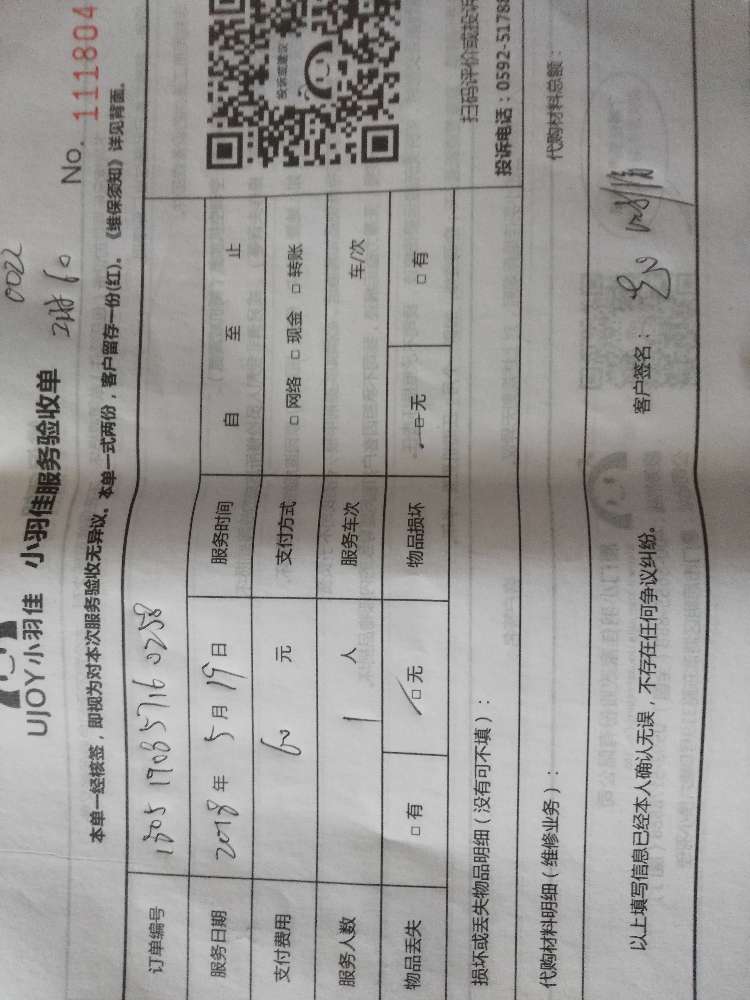 0022
UJOY小羽佳 小羽佳服务验收单
No. 111804
本单一经核签，即视为对本次服务验收无异议。本单一式两份，客户留存一份(红)。《维保须知》详见背面。
订单编号
服务日期 2018年 5月 19日 服务时间 自 至 止
支付费用 60 元 支付方式 □ 网络 □ 现金 □ 转账
服务人数 1 人 服务车次 车/次
物品丢失 □ 有 □ 无 物品损坏 □ 无 □ 有
投诉或建议
扫码评价或投诉
投诉电话：0592-5178
损坏或丢失物品明细（没有可不填）：
代购材料明细（维修业务）： 代购材料总额：
以上填写信息已经本人确认无误，不存在任何争议纠纷。 客户签名：